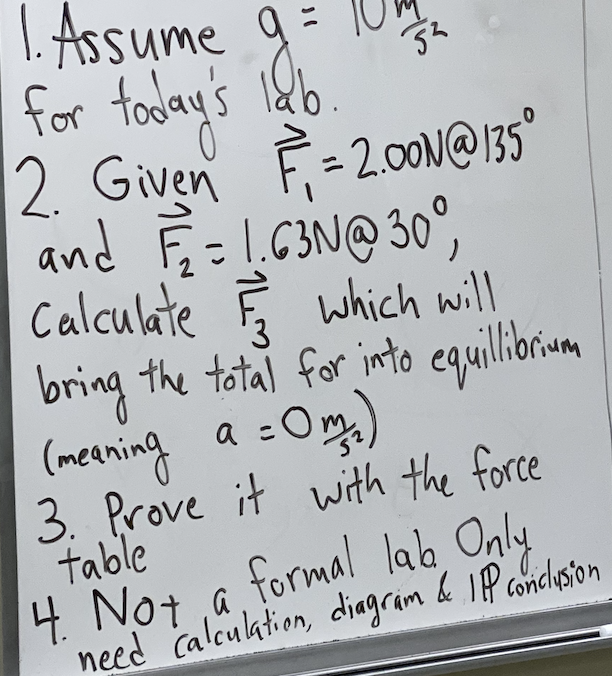 1. Assume g = 10 m/s²
for today's lab.
2. Given F⃗₁ = 2.00N@135°
and F⃗₂ = 1.63N@30°,
Calculate F⃗₃ which will
bring the total for into equillibrium
(meaning a = 0 m/s²)
3. Prove it with the force
table
4. Not a formal lab. Only
need calculation, diagram & 1 P conclusion